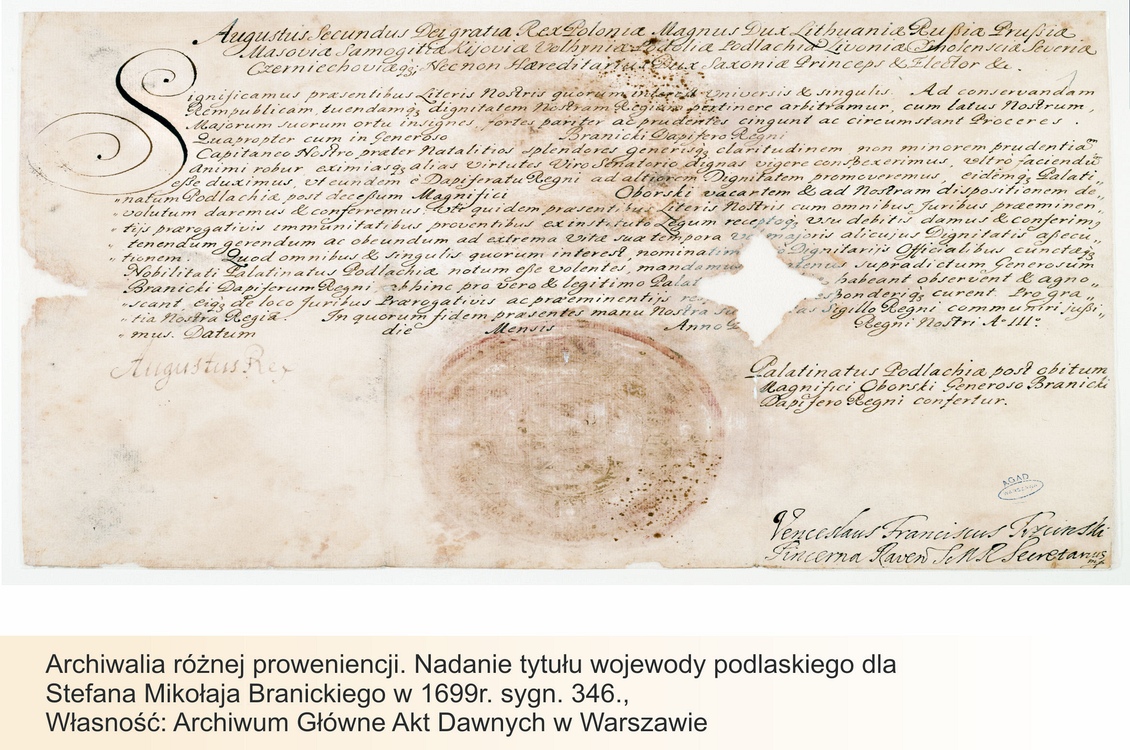 Augustus Secundus Dei gratia Rex Poloniæ Magnus Dux Lithuaniæ Rußiæ Prußiæ
Masoviæ Samogitiæ Kijoviæ Volhyniæ Podoliæ Podlachiæ Livoniæ Smolensciæ Severiæ
Czerniechoviæq3; Necnon Hæreditarius Dux Saxoniæ Princeps & Elector &c.
Significamus præsentibus Literis Nostris quorum interest Universis & singulis. Ad conservandam
Rempublicam, tuendamq3 dignitatem Nostram Regiam pertinere arbitramur, cum latus Nostrum,
Majorum suorum ortu insignes, fortes pariter ac prudentes cingunt ac circumstant Proceres.
Quapropter cum in Generoso Branicki Dapifero Regni
Capitaneo Nostro præter Natalitios splendores generisq3 claritudinem non minorem prudentiæ
animi robur, eximiasq3 alias virtutes Viro Senatorio dignas vigere conspexerimus, ultro faciendū
eße duximus, ut eundem è Dapiferatu Regni ad altiorem Dignitatem promoveremus, eidemq3 Palati„
„natum Podlachiæ post deceßum Magnifici Oborski vacantem & ad Nostram dispositionem de„
„volutum daremus & conferremus. Uti quidem præsentibus Literis Nostris cum omnibus Juribus præeminen„
„tijs prærogativis immunitatibus proventibus ex instituto Legum receptoq3 usu debitis damus & conferim,
„tenendum gerendum ac obeundum ad extrema vitæ suæ tempora vel majoris alicujus Dignitatis aßecu„
„tionem. Quod omnibus & singulis quorum interest, nominatim Dignitarijs Officialibus cunctæq3
Nobilitati Palatinatus Podlachiæ notum eße volentes, mandamus supradictum Generosum
Branicki Dapiferum Regni abhinc pro vero & legitimo habeant observent & agno„
„scant, eiq3 de loco Juribus Prærogativis ac præeminentijs curent. Pro gra„
„tia Nostra Regia. In quorum fidem præsentes manu Nostra Sigillo Regni communiri jußi„
„mus. Datum die Mensis Anno Regni Nostri Aº IIIº
Augustus Rex
Palatinatus Podlachiæ post obitum
Magnifici Oborski Generoso Branicki
Dapifero Regni confertur.
AGAD
WARSZAWA
Venceslaus Franciscus
Pincerna Raven S M R Secretarius
mp
Archiwalia różnej proweniencji. Nadanie tytułu wojewody podlaskiego dla
Stefana Mikołaja Branickiego w 1699r. sygn. 346.,
Własność: Archiwum Główne Akt Dawnych w Warszawie